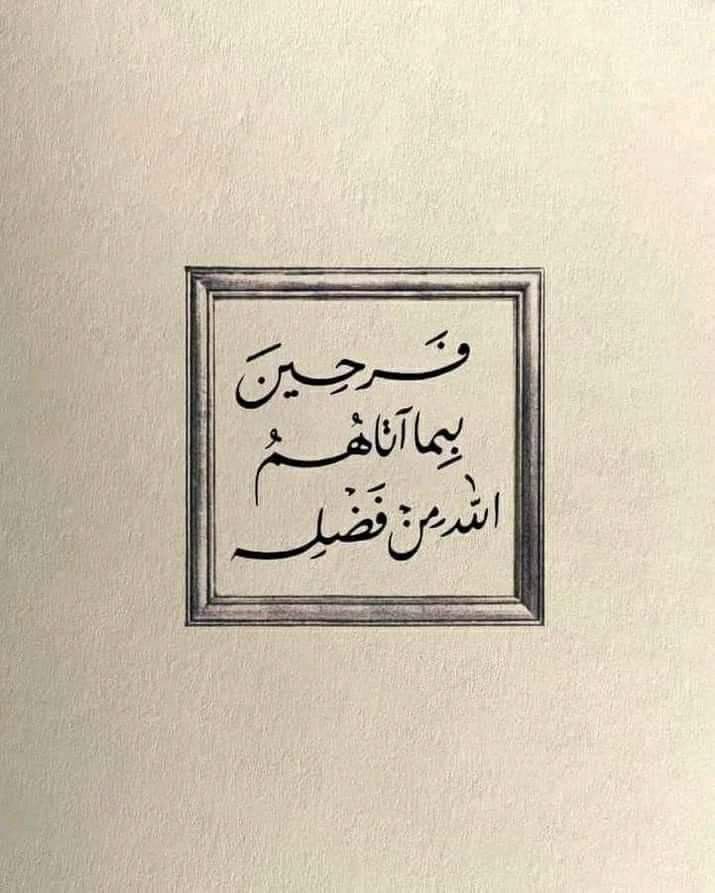 فَرحِينَ
بِما آتاهُمُ
اللهُ مِنْ فَضْلِه